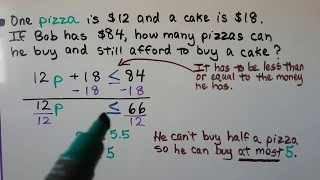 One pizza is $12 and a cake is $18.
If Bob has $84, how many pizzas can
he buy and still afford to buy a cake?
12p + 18 ≤ 84
- 18 - 18
12p ≤ 66
12 12
5.5
5
It has to be less than
or equal to the money
he has.
He can't buy half a pizza
so he can buy at most 5.